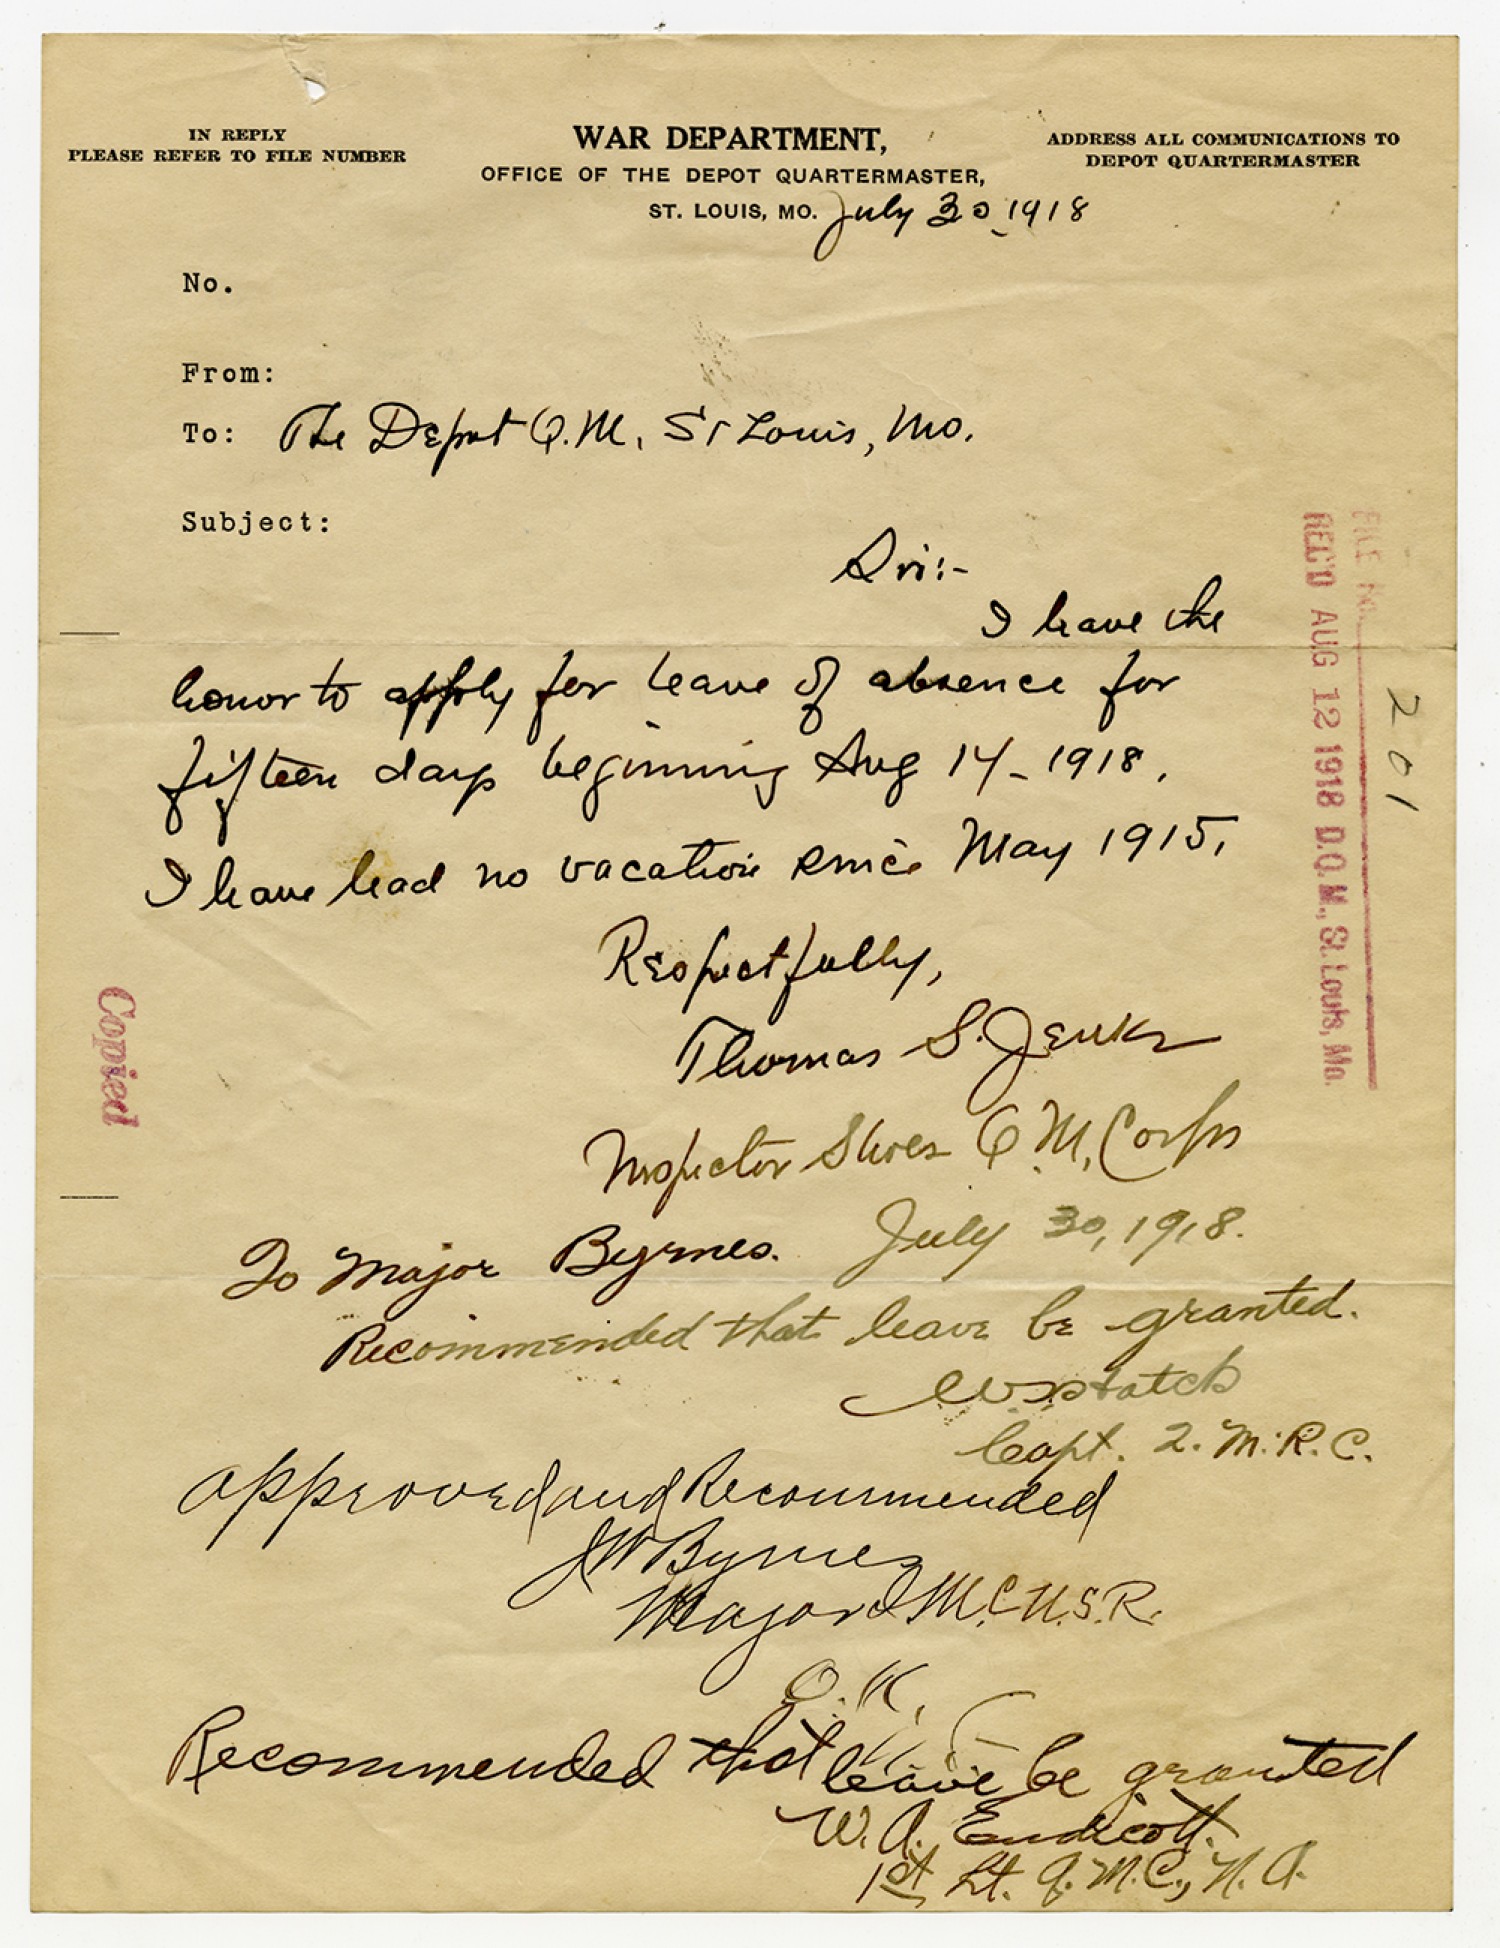 IN REPLY
PLEASE REFER TO FILE NUMBER
WAR DEPARTMENT,
OFFICE OF THE DEPOT QUARTERMASTER,
ST. LOUIS, MO. July 30, 1918
ADDRESS ALL COMMUNICATIONS TO
DEPOT QUARTERMASTER
No.
From:
To: The Depot Q.M. St Louis, Mo.
Subject:
Sir:-
I have the
honor to apply for leave of absence for
fifteen days beginning Aug 14-1918.
I have had no vacation since May 1915.
Respectfully,
Thomas S. Jenks
Inspector Shoes Q.M. Corps
July 30, 1918.
To Major Byrnes.
Recommended that leave be granted.
Capt. Q.M.R.C.
Approved and Recommended
JW Byrnes
Major Q.M.C. U.S.R.
O.K.
Recommended that leave be granted
W. A. Endicott.
1st Lt. Q.M.C., N.A.
FILE No. 201
REC'D AUG 12 1918 D.Q.M., St. Louis, Mo.
Copied